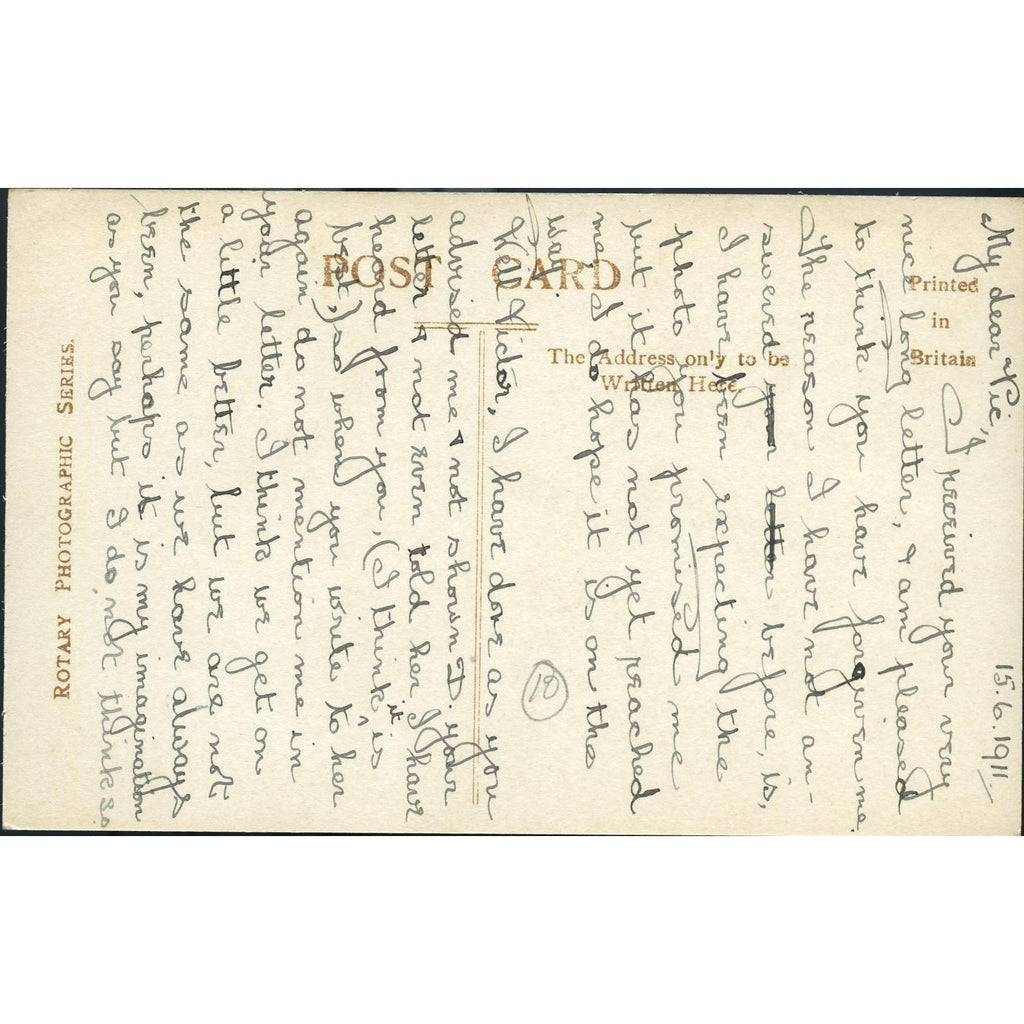 15.6.1911.
My dear Vic,
I received your very
nice long letter, & am pleased
to think you have forgiven me.
The reason I have not an-
swered you letter before, is,
I have been expecting the
photo you promised me
but it has not yet reached
me, I do hope it is on the
way.
Well Victor, I have done as you
advised me & not shown D. your
letter & not even told her I have
heard from you, (I think it is
best,) so when you write to her
again do not mention me in
your letter. I think we get on
a little better, but we are not
the same as we have always
been, perhaps it is my imagination
as you say but I do not think so.
12
POST CARD
Printed
in
Britain
The Address only to be
Written Here.
ROTARY PHOTOGRAPHIC SERIES.